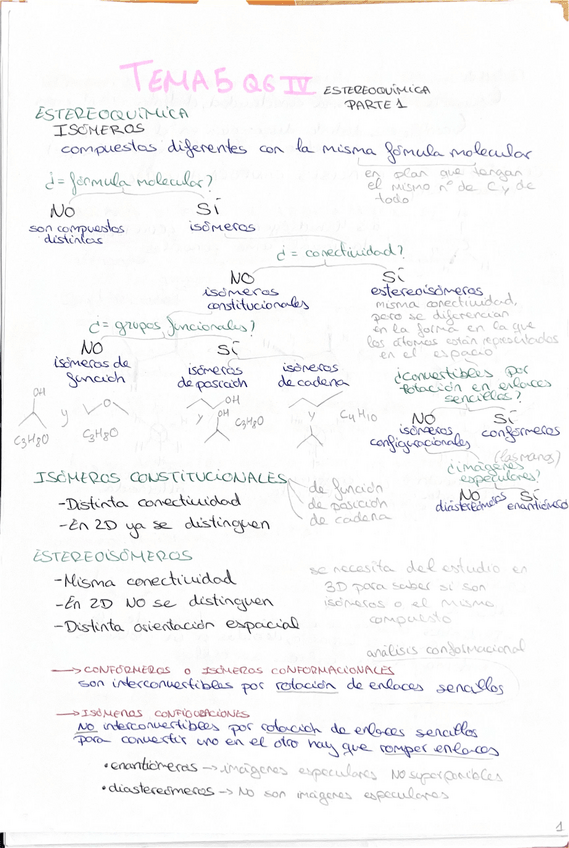 TEMA 5 Q6 IV ESTEREOQUÍMICA
PARTE 1
ESTEREOQUÍMICA
ISÓMEROS
compuestos diferentes con la misma fórmula molecular
en plan que tengan
el mismo nº de C y de
todo
¿= fórmula molecular?
NO SÍ
son compuestos
distintos
isómeros
¿= conectividad?
NO SÍ
isómeros
constitucionales
estereoisómeros
misma conectividad,
pero se diferencian
en la forma en la que
los átomos están representados
en el espacio
¿= grupos funcionales?
NO SÍ
isómeros de
función
isómeros
de posición
isómeros
de cadena
¿Convertibles por
rotación en enlaces
sencillos?
NO SÍ
isómeros
configuracionales
confórmeros
(las manos)
¿imágenes
especulares?
NO SÍ
diasterómeros enantiómeros
OH
y
O
C3H8O
C3H8O
OH
y
OH
C3H8O
y
C4H10
ISÓMEROS CONSTITUCIONALES
de función
de posición
de cadena
-Distinta conectividad
-En 2D ya se distinguen
ESTEREOISÓMEROS
-Misma conectividad
-En 2D NO se distinguen
-Distinta orientación espacial
se necesita del estudio en
3D para saber si son
isómeros o el mismo
compuesto
análisis conformacional
→ CONFÓRMEROS O ISÓMEROS CONFORMACIONALES
son interconvertibles por rotación de enlaces sencillos
→ ISÓMEROS CONFIGURACIONES
NO interconvertibles por rotación de enlaces sencillos
para convertir uno en el otro hay que romper enlaces
•enantiómeros → imágenes especulares NO superponibles
•diastereómeros → No son imágenes especulares
1